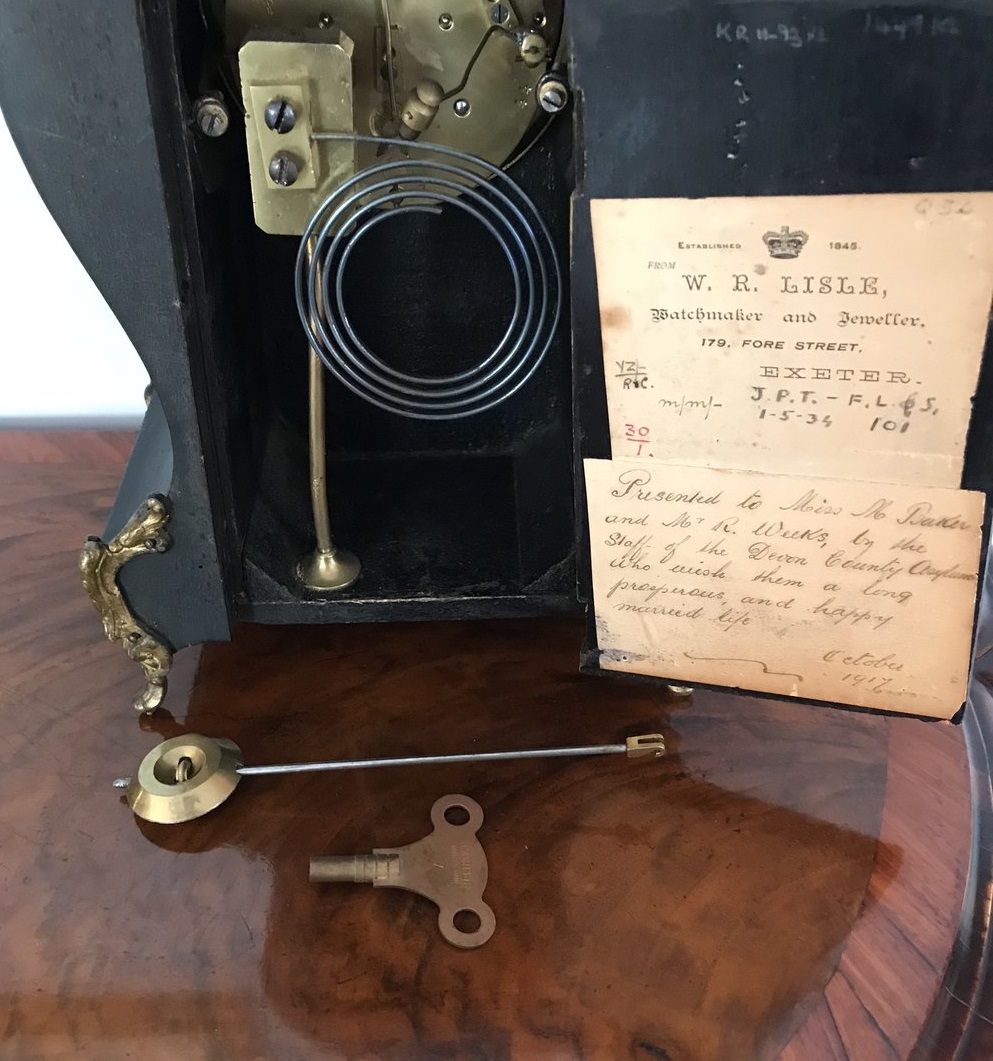 ESTABLISHED 1845.
FROM
W. R. LISLE,
Watchmaker and Jeweller.
179, FORE STREET,
EXETER.
m/m/- J.P.T. - F.L & S,
1-5-34 101
30
1.
Presented to Miss M Baker
and Mr R. Weeks, by the
Staff of the Devon County Asylum
who wish them a long
prosperous, and happy
married life
October
1917